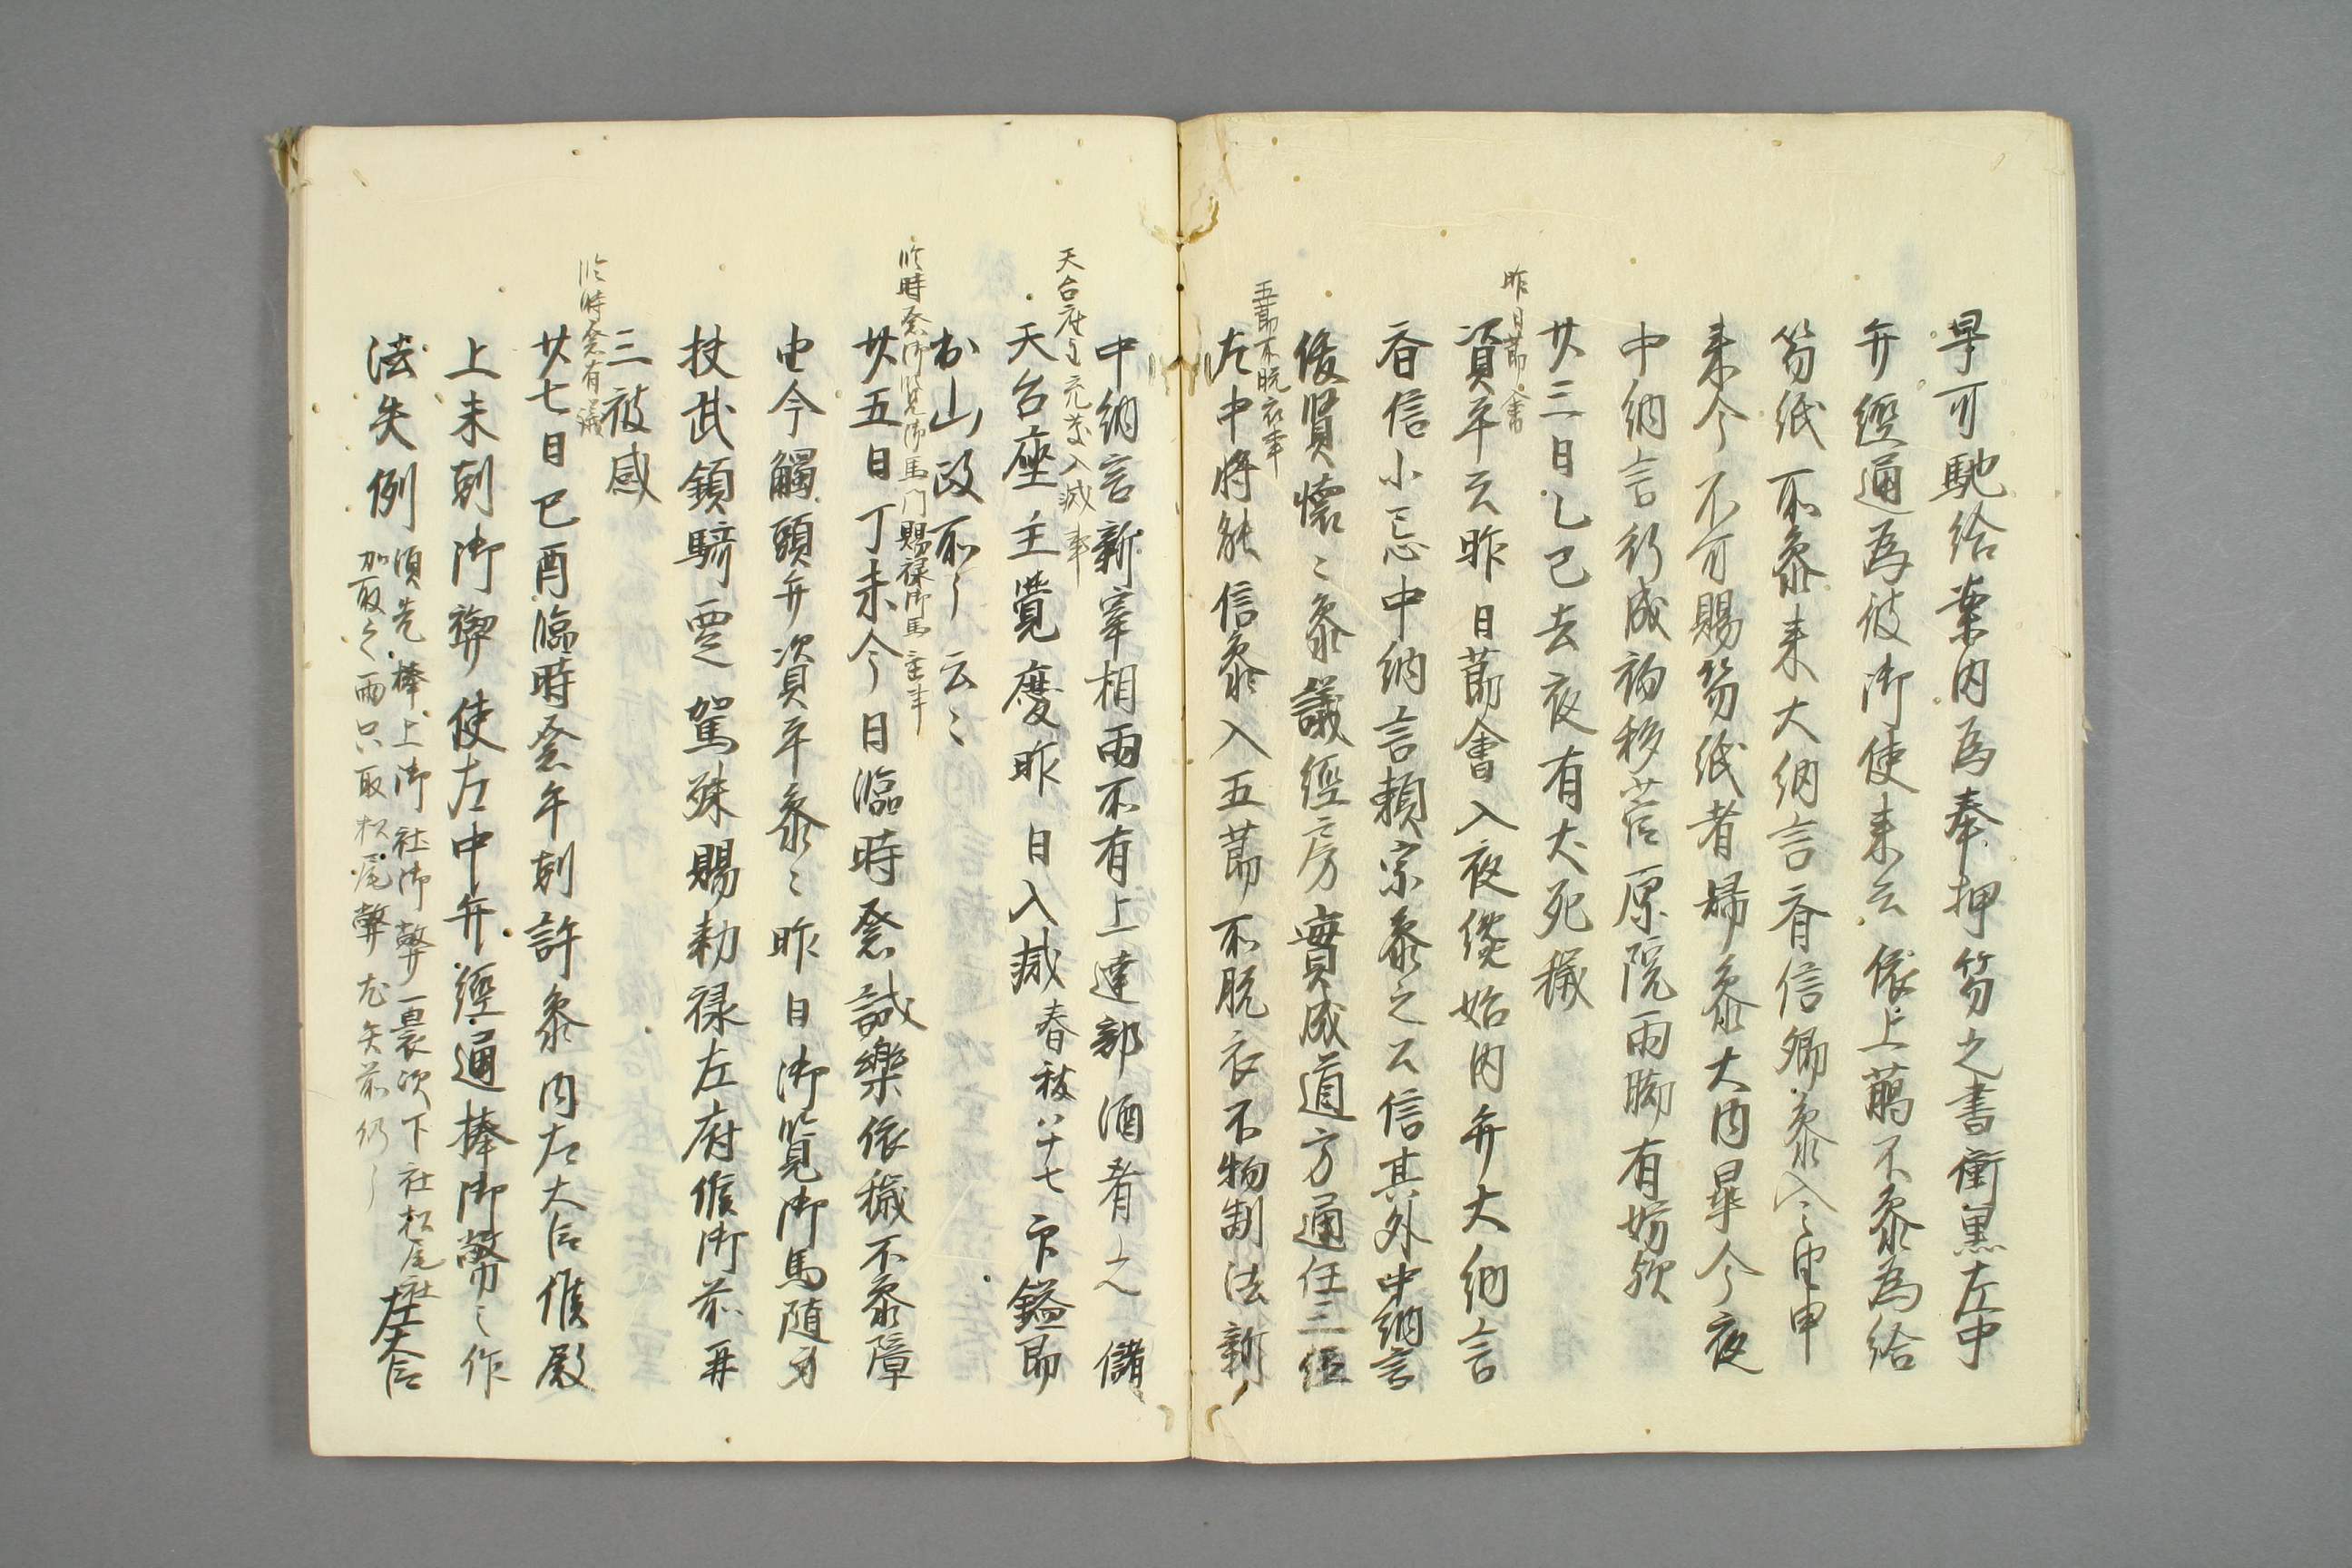 早可馳給案内為奉押笏之書衝黒左中
弁經通為彼御使来云依上臈不参為給
笏紙所参来大納言斉信卿参入之由申
来今不可賜笏紙者歸参大内畢今夜
中納言行成初移菩原院雨脚有妨歟
廿三日乙巳去夜有犬死穢
昨日莭會
資平云昨日莭會入夜纔始内弁大納言
斉信小忌中納言頼宗参之公信其外中納言
俊賢懐々参議經房實成道方通任三位
五莭不脱衣事
左中將能信参入五莭所脱衣不拘制法新
中納言新宰相兩不有上達部酒肴之儲
天台座主覚慶入滅事
天台座主覺慶昨日入滅春秋八十七印鎰即
於山政所々云々
臨時祭御覧御馬間賜禄御馬主事
廿五日丁未今日臨時祭試樂依穢不参障
由今觸頭弁資平参々昨日御覧御馬随身
扶武鎮騎悪駕殊賜勅禄左府候御前再
三被感
臨時祭有議
廿七日己酉臨時祭午剋許参内左大臣候殿
上未剋御禊使左中弁經通捧御幣々作
法失例須先捧上御社御幣一裹次下社松尾社左大臣
加取之而只取松尾幣尤失前仍々